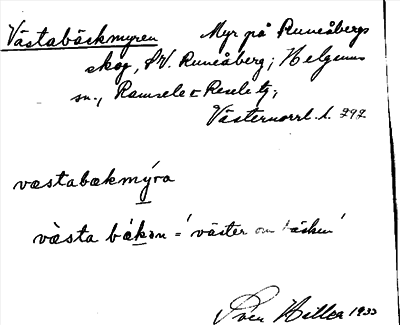 Västabäckmyren Myr på Runeåbergs
skog, SV. Runeåberg; Helgums
sn., Ramsele o Resele tg,
Västernorrl. l. 292
vœstabœkmýra
vœ̀sta bœ́kən = 'väster om bäcken'
Sven 1933